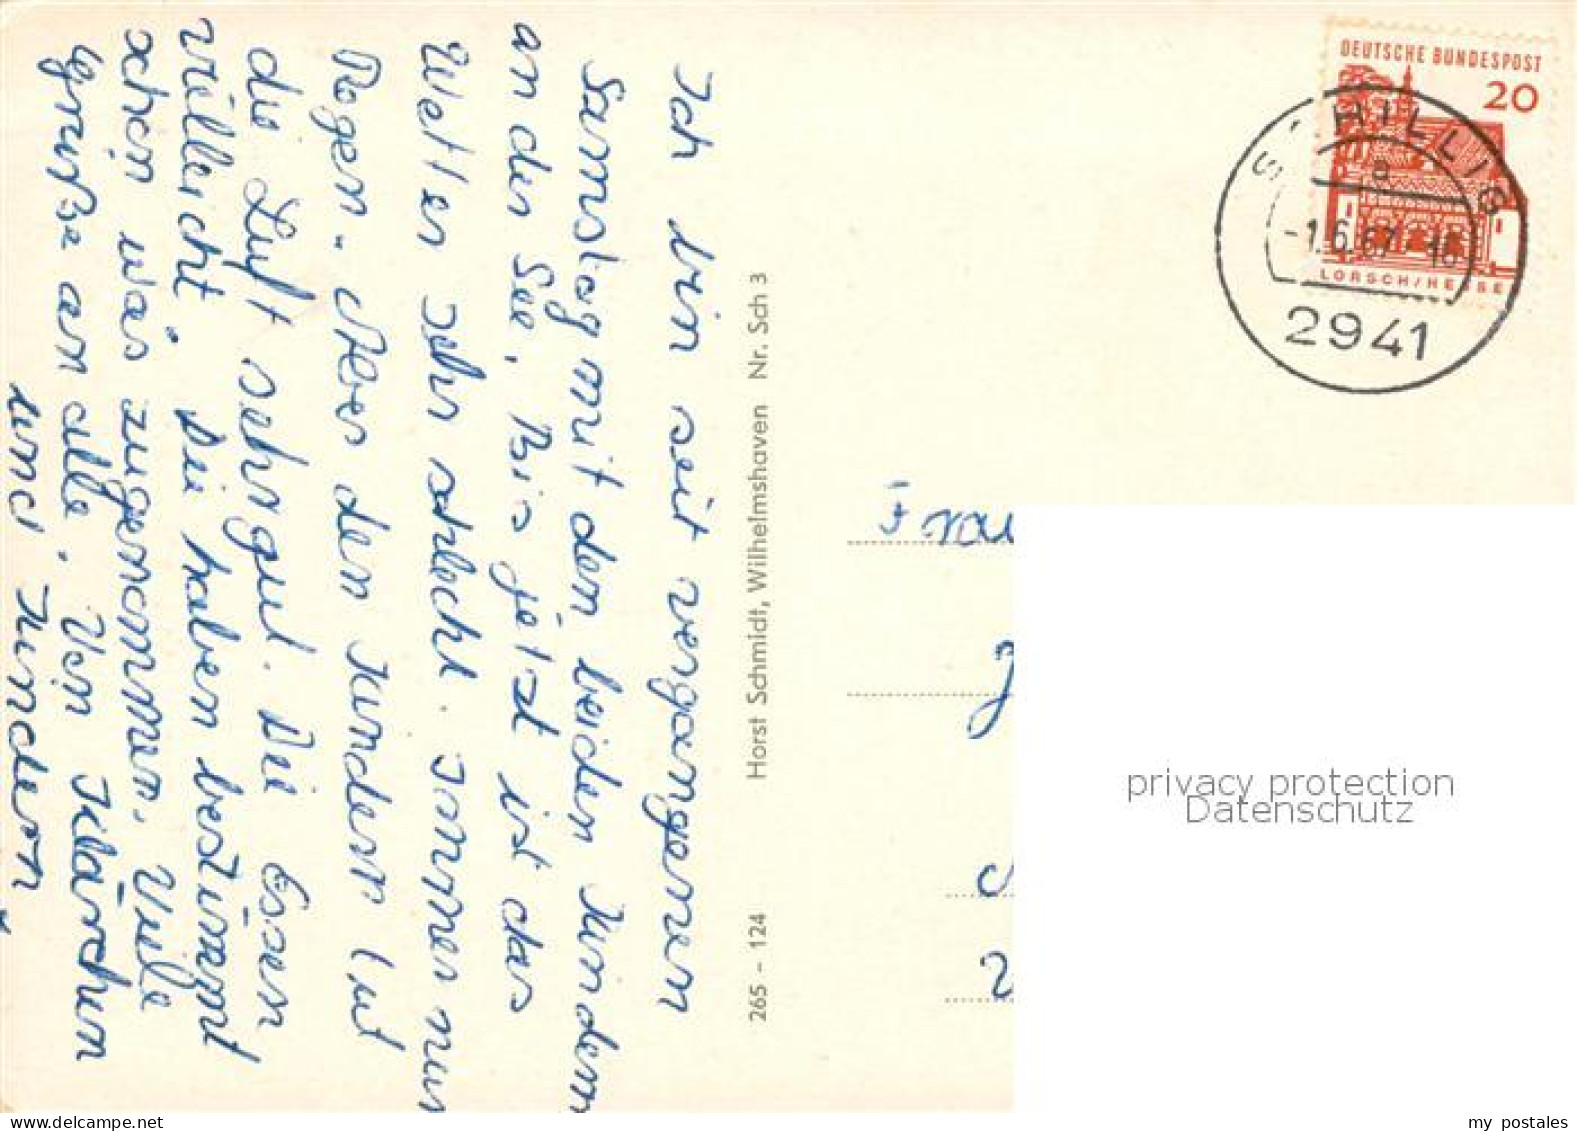 Ich bin seit vergangenen
Samstag mit den beiden Kindern
an der See. Bis jetzt ist das
Wetter sehr schlecht. Immer nur
Regen. Aber den Kindern tut
die Luft sehr gut. Die Essen
vielleicht, Sie haben bestimmt
schon was zugenommen. Viele
Grüße an alle. Von Klärchen
und Kindern
Horst Schmidt, Wilhelmshaven Nr. Sch 3
265 - 124
DEUTSCHE BUNDESPOST
20
LORSCH/HESSEN
SCHILLIG
a
-1.6.67-16
2941
Frau
privacy protection
Datenschutz
my postales